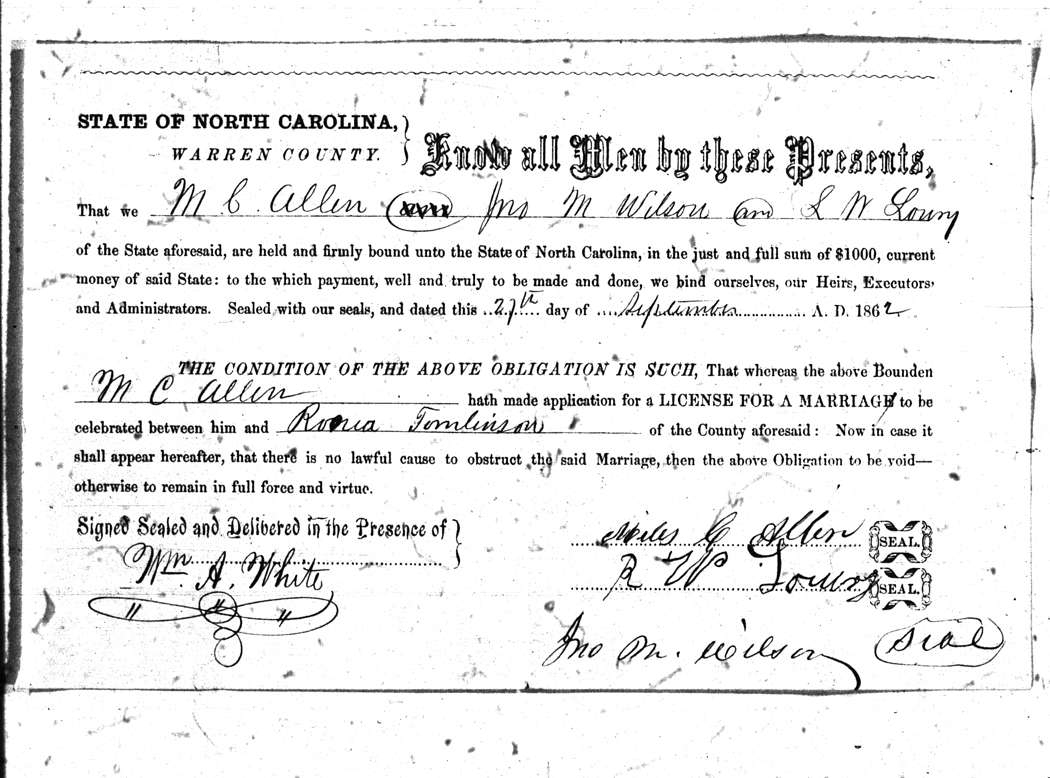 STATE OF NORTH CAROLINA,
WARREN COUNTY.
Know all Men by these Presents,
That we M C. Allen Jno M Wilson and L W Loury
of the State aforesaid, are held and firmly bound unto the State of North Carolina, in the just and full sum of $1000, current
money of said State: to the which payment, well and truly to be made and done, we bind ourselves, our Heirs, Executors,
and Administrators. Sealed with our seals, and dated this 27th day of September A. D. 1862
THE CONDITION OF THE ABOVE OBLIGATION IS SUCH, That whereas the above Bounden
M C Allen hath made application for a LICENSE FOR A MARRIAGE to be
celebrated between him and Tomlinson of the County aforesaid: Now in case it
shall appear hereafter, that there is no lawful cause to obstruct the said Marriage, then the above Obligation to be void—
otherwise to remain in full force and virtue.
Signed Sealed and Delibered in the Presence of
Wm A. White
Miles C Allen SEAL.
R W Loury SEAL.
Jno M. Wilson Seal